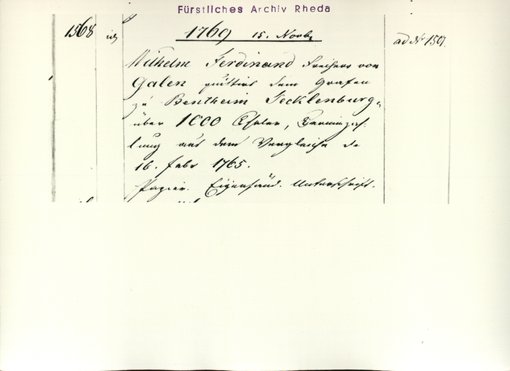 Fürstliches Archiv Rheda
1568
1769 15. Novbr
ad Nr 1507
Wilhelm Ferdinand Freiherr von
Galen quittirt dem Grafen
zu Bentheim Tecklenburg
über 1000 Thaler, Terminzah
lung aus dem Vergleiche de
16. Febr 1765.
Papier. Eigenhänd. Unterschrift.